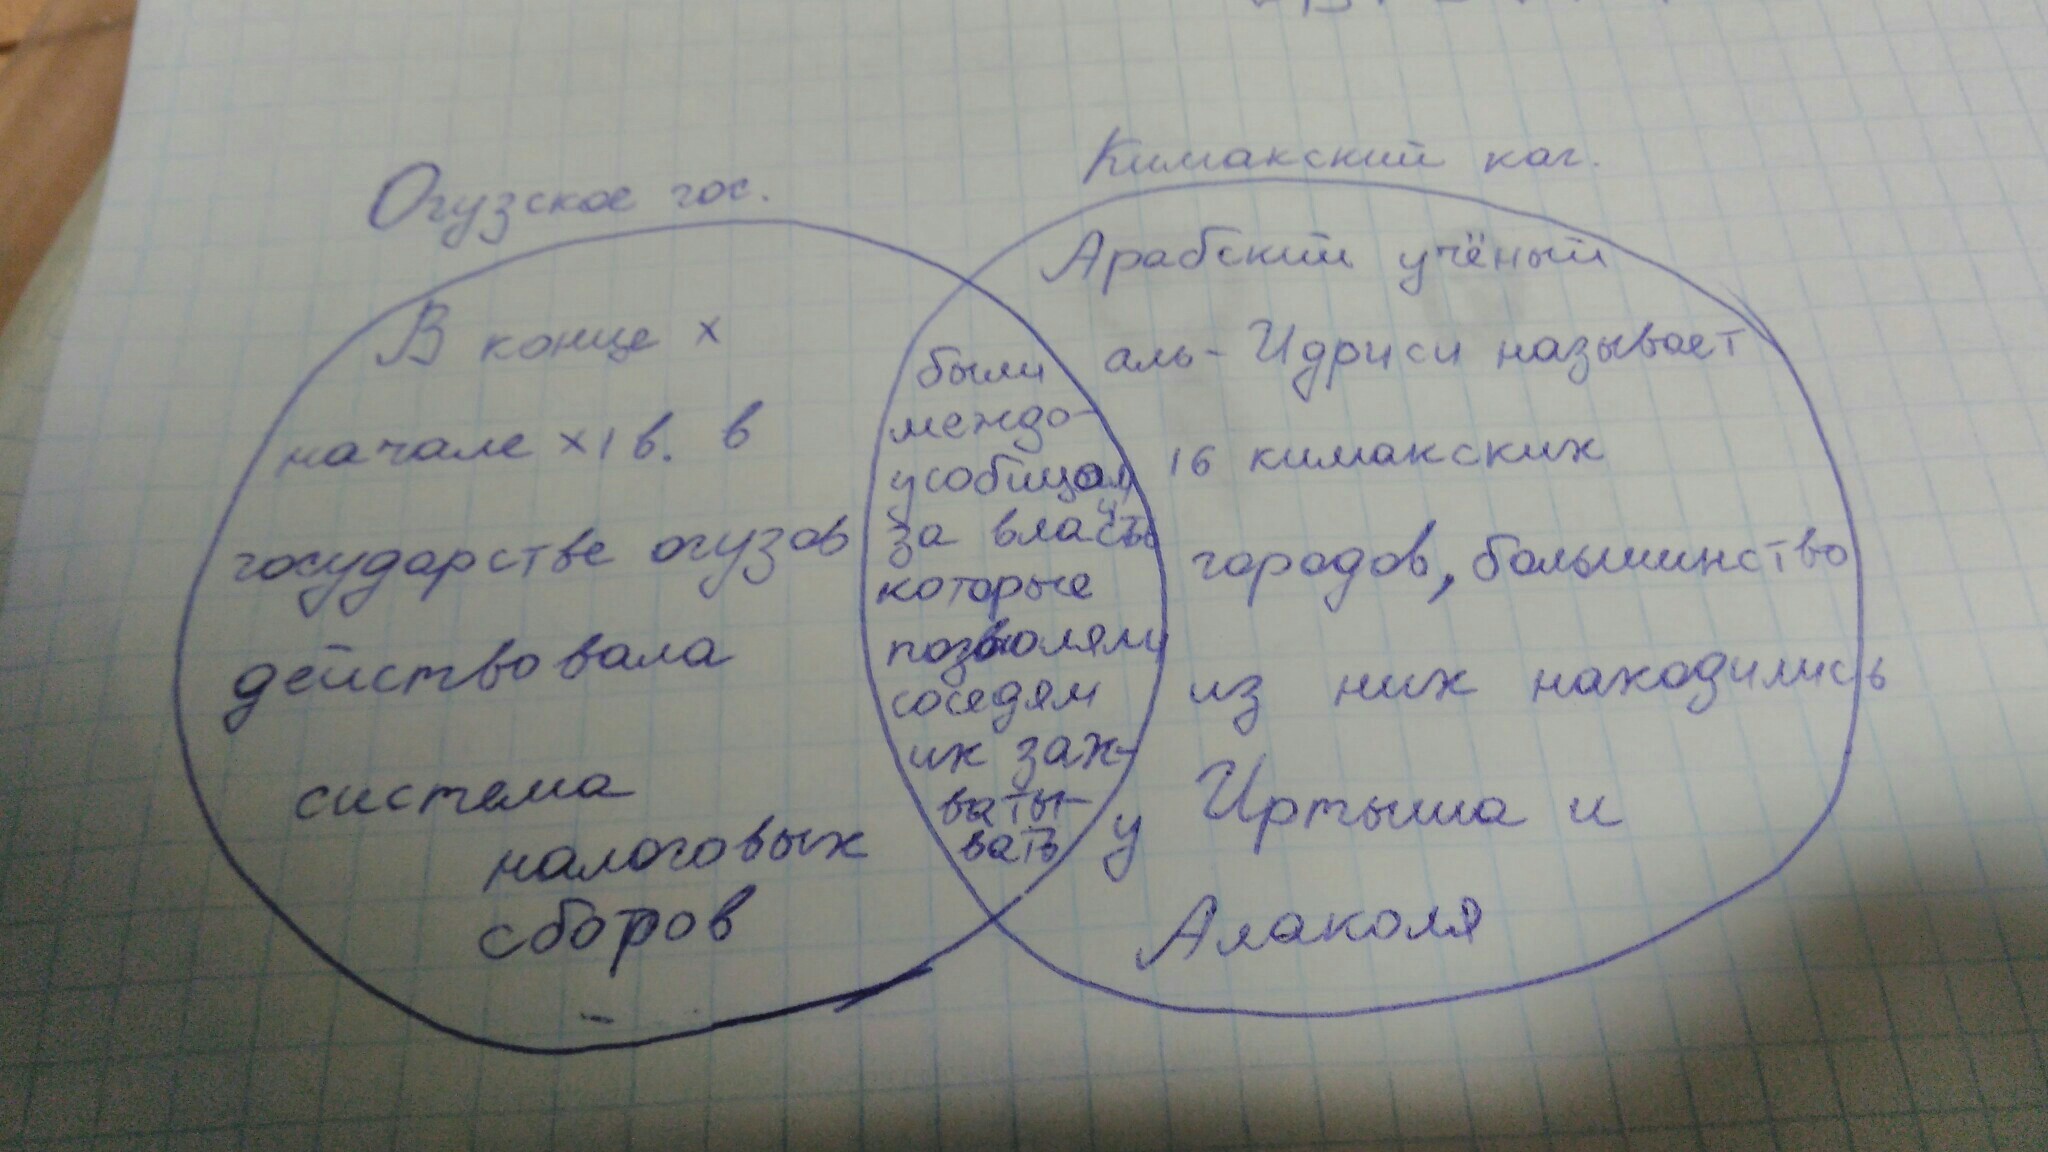 Огузское гос.
Кимакский каг.
В конце х
начале х1 в. в
государстве огузов
действовала
система
налоговых
сборов
были
междо-
усобицами
за власть
которые
позволяли
соседям
их зах-
ваты-
вать
Арабский учёный
аль-Идриси называет
16 кимакских
городов, большинство
из них находились
у Иртыша и
Алаколя